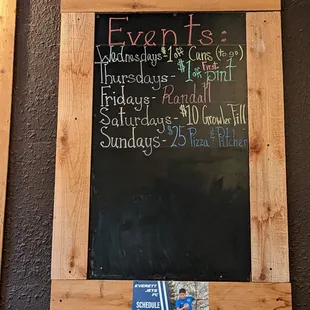 Events:
Wednesdays - $1 off Cans (to go)
Thursdays - $1 off First pint
Fridays - Randall
Saturdays - $10 Growler Fill
Sundays - $25 Pizza & Pitcher
EVERETT
JETS
FC
SCHEDULE